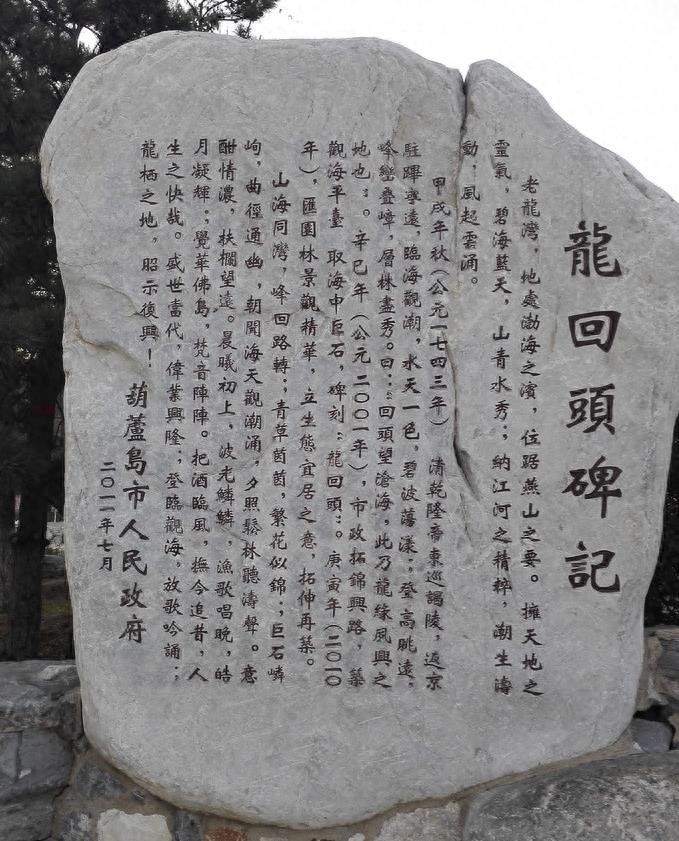 龍回頭碑記
老龍灣，地處渤海之濱，位踞燕山之要。擁天地之
靈氣，碧海藍天，山青水秀；納江河之精粹，潮生濤
動，風起雲涌。
甲戌年秋（公元一七四三年）清乾隆帝東巡謁陵，返京
駐蹕寧遠，臨海觀潮，水天一色，碧波蕩漾；登高眺遠：
峰巒疊嶂，層林盡秀。曰：“回頭望滄海，此乃龍緣風興之
地也”。辛巳年（公元二〇〇一年），市政拓錦興路，築
觀海平臺 取海中巨石，碑刻：龍回頭”。庚寅年（二〇一〇
年），匯園林景觀精華，立生態宜居之意，拓伸再築。
山海同灣，峰回路轉；青草茵茵，繁花似錦；巨石嶙
峋，曲徑通幽，朝閱海天觀潮涌，夕照鬆林聽濤聲。意
酣情濃，扶欄望遠。晨曦初上，波光鱗鱗，漁歌唱晚，皓
月凝輝；覺華佛島，梵音陣陣。把酒臨風，撫今追昔，人
生之快哉。盛世當代，偉業興隆；登臨觀海，放歌吟誦；
龍栖之地，昭示復興！
葫蘆島市人民政府
二〇一一年七月